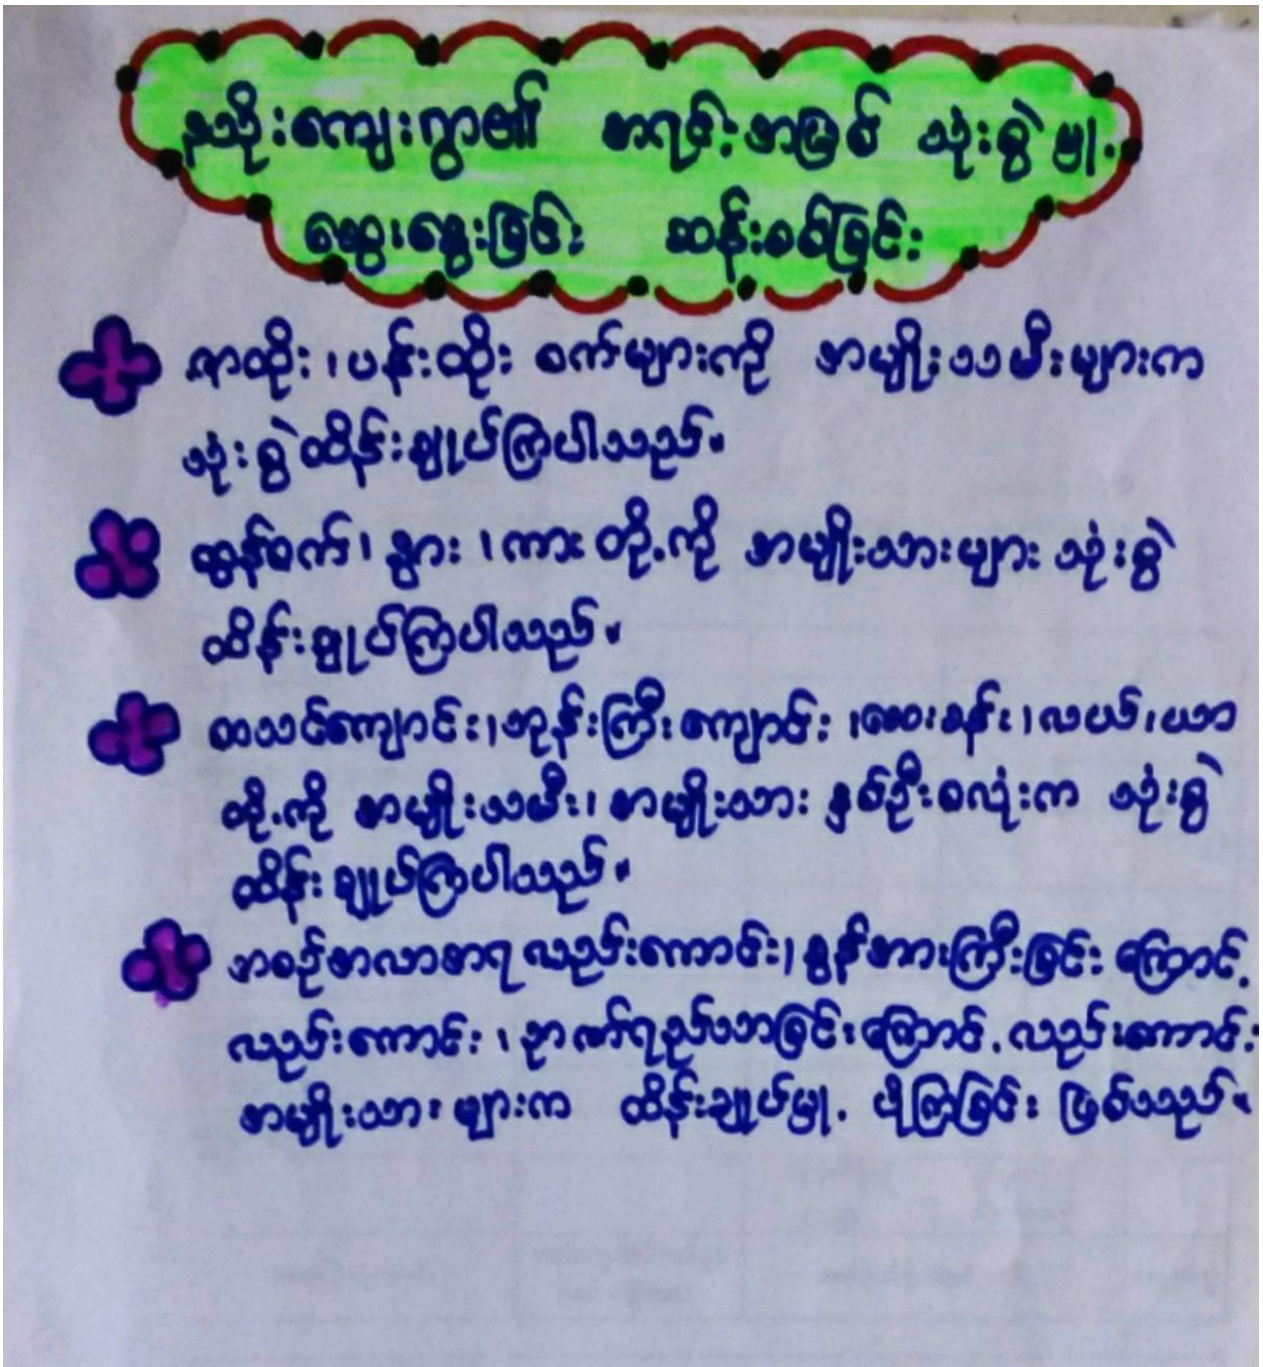 နသိုးကျေးရွာ၏ အရင်းအမြစ် သုံးစွဲမှု.
ဆွေးနွေးခြင်း ဆန်းစစ်ခြင်း
ဇာထိုး၊ပန်းထိုး စက်များကို အမျိုးသမီးများက
သုံးစွဲထိန်းချုပ်ကြပါသည်။
ထွန်စက်၊ နွား ၊ကား တို့ကို အမျိုးသားများ သုံးစွဲ
ထိန်းချုပ်ကြပါသည်။
စာသင်ကျောင်း၊ဘုန်းကြီးကျောင်း ၊ဆေးခန်း၊လယ်၊ယာ
တို့ကို အမျိုးသမီး၊ အမျိုးသား နှစ်ဦးစလုံးက သုံးစွဲ
ထိန်းချုပ်ကြပါသည်။
အစဉ်အလာအရ လည်းကောင်း၊ ခွန်အားကြီးခြင်း ကြောင့်
လည်းကောင်း ၊ဉာဏ်ရည်သာခြင်းကြောင့် လည်းကောင်း
အမျိုးသား များက ထိန်းချုပ်မှု. ပိုကြခြင်း ဖြစ်သည်။